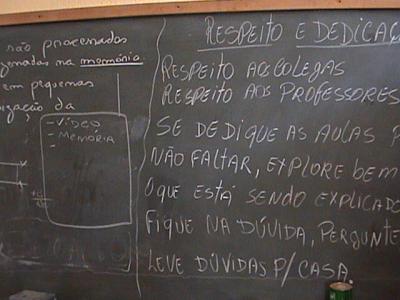 não processados
na memória.
em pequenas
da
- VÍDEO
- MEMÓRIA
-
RESPEITO E DEDICAÇ
RESPEITO AOS COLEGAS
RESPEITO AOS PROFESSORES
SE DEDIQUE AS AULAS P
NÃO FALTAR, EXPLORE BEM
O QUE ESTÁ SENDO EXPLICADO
FIQUE NA DÚVIDA, PERGUNTE
LEVE DÚVIDAS P/ CASA.